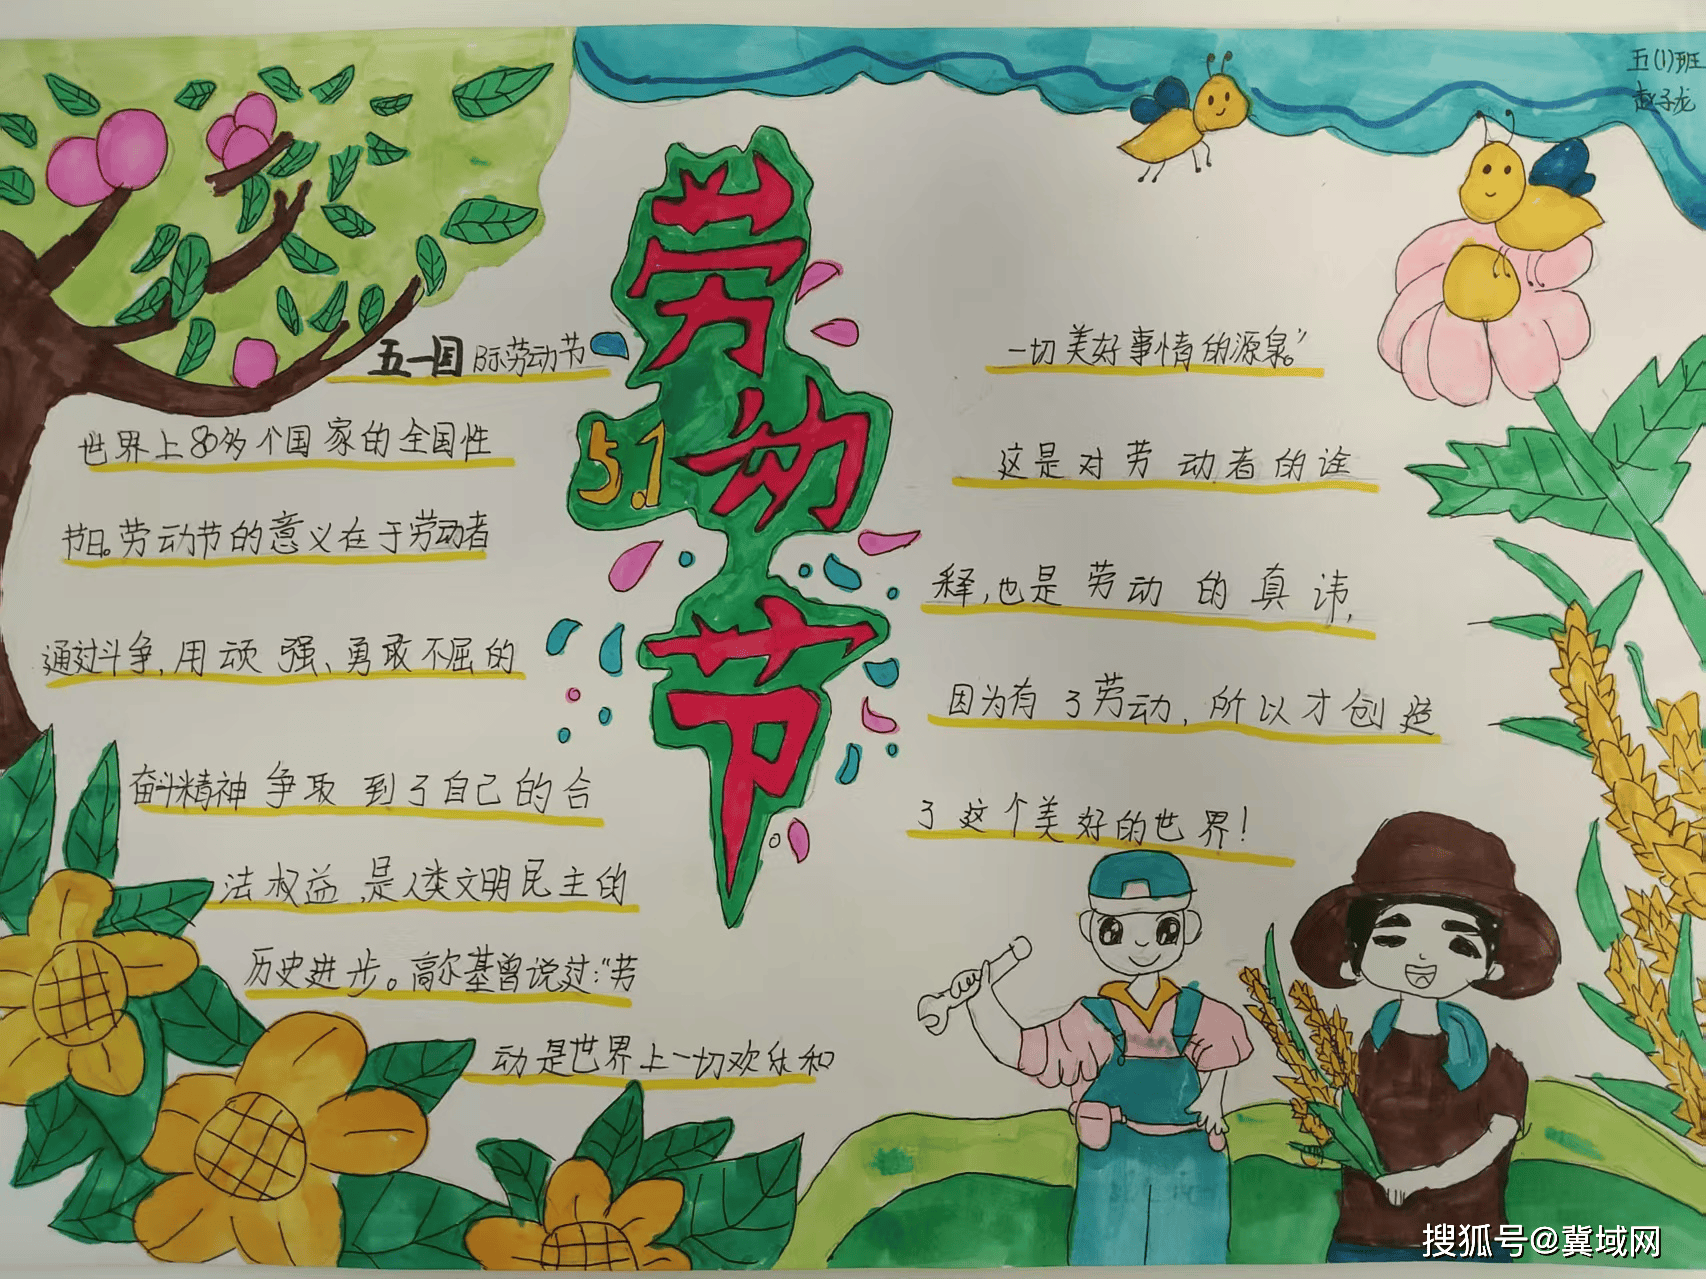 五(1)班
赵子龙
劳动节
5.1
五一国际劳动节
世界上80多个国家的全国性
节日。劳动节的意义在于劳动者
通过斗争,用顽强、勇敢不屈的
奋斗精神争取到了自己的合
法权益,是人类文明民主的
历史进步。高尔基曾说过:“劳
动是世界上一切欢乐和
一切美好事情的源泉。”
这是对劳动者的诠
释,也是劳动的真讳,
因为有了劳动,所以才创造
了这个美好的世界!
搜狐号@冀域网